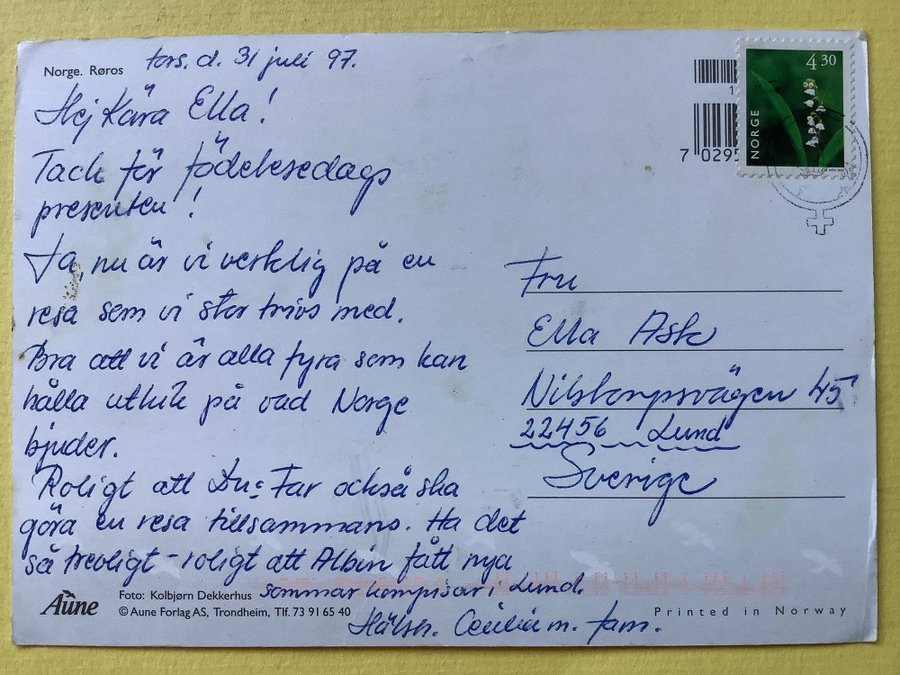 Norge. Røros
tors. d. 31 juli 97.
Hej Kära Ella!
Tack för födelsedags
presenten!
Ja, nu är vi verklig på en
resa som vi stor trivs med.
Bra att vi är alla fyra som kan
hålla utkik på vad Norge
bjuder.
Roligt att Du o Far också ska
göra en resa tillsammans. Ha det
så trevligt - roligt att Albin fått nya
sommarkompisar i Lund.
Hälsn. Cecilia m. fam.
Foto: Kolbjørn Dekkerhus
Aune
© Aune Forlag AS, Trondheim, Tlf. 73 91 65 40
4 30
NORGE
1
7 0295
Fru
Ella Ask
Nilstorpsvägen 45
22456 Lund
Sverige
Printed in Norway